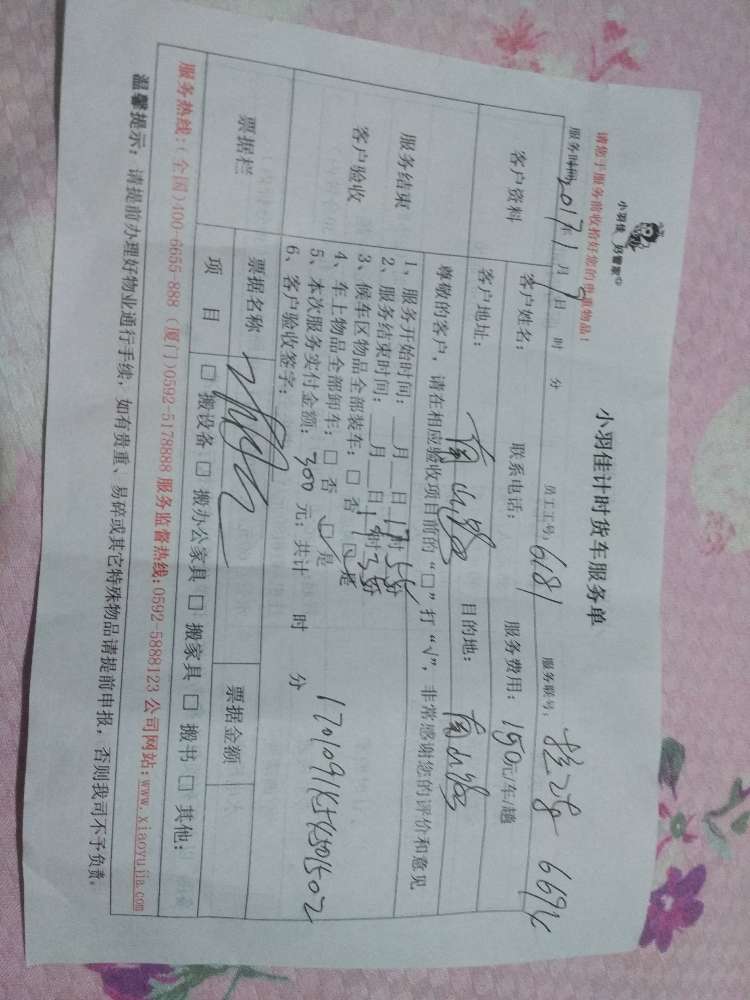 小羽佳 好管家
小羽佳计时货车服务单
请您于服务前收拾好您的贵重物品！
服务时间：2017年1月9日 时 分 员工工号：6181 服务联号： 6694
客户资料 客户姓名： 联系电话： 服务费用：150元/车/趟
客户地址：南山路 目的地：南山路
尊敬的客户，请在相应验收项目前的“□”打“√”，非常感谢您的评价和意见
服务结束
客户验收
1、服务开始时间：__月__日17时55分
2、服务结束时间：__月__日19时35分
3、候车区物品全部装车：□ 否 □ 是
4、车上物品全部卸车：□ 否 □ 是
5、本次服务实付金额：300元；共计 时 分
6、客户验收签字：
票据栏 票据名称 票据金额
项 目 □ 搬设备 □ 搬办公家具 □ 搬家具 □ 搬书 □ 其他：
服务热线：（全国）400-6655-888 （厦门）0592-5178888 服务监督热线：0592-5888123 公司网站：www.xiaoyujia.com
温馨提示：请提前办理好物业通行手续，如有贵重、易碎或其它特殊物品请提前申报，否则我司不予负责。